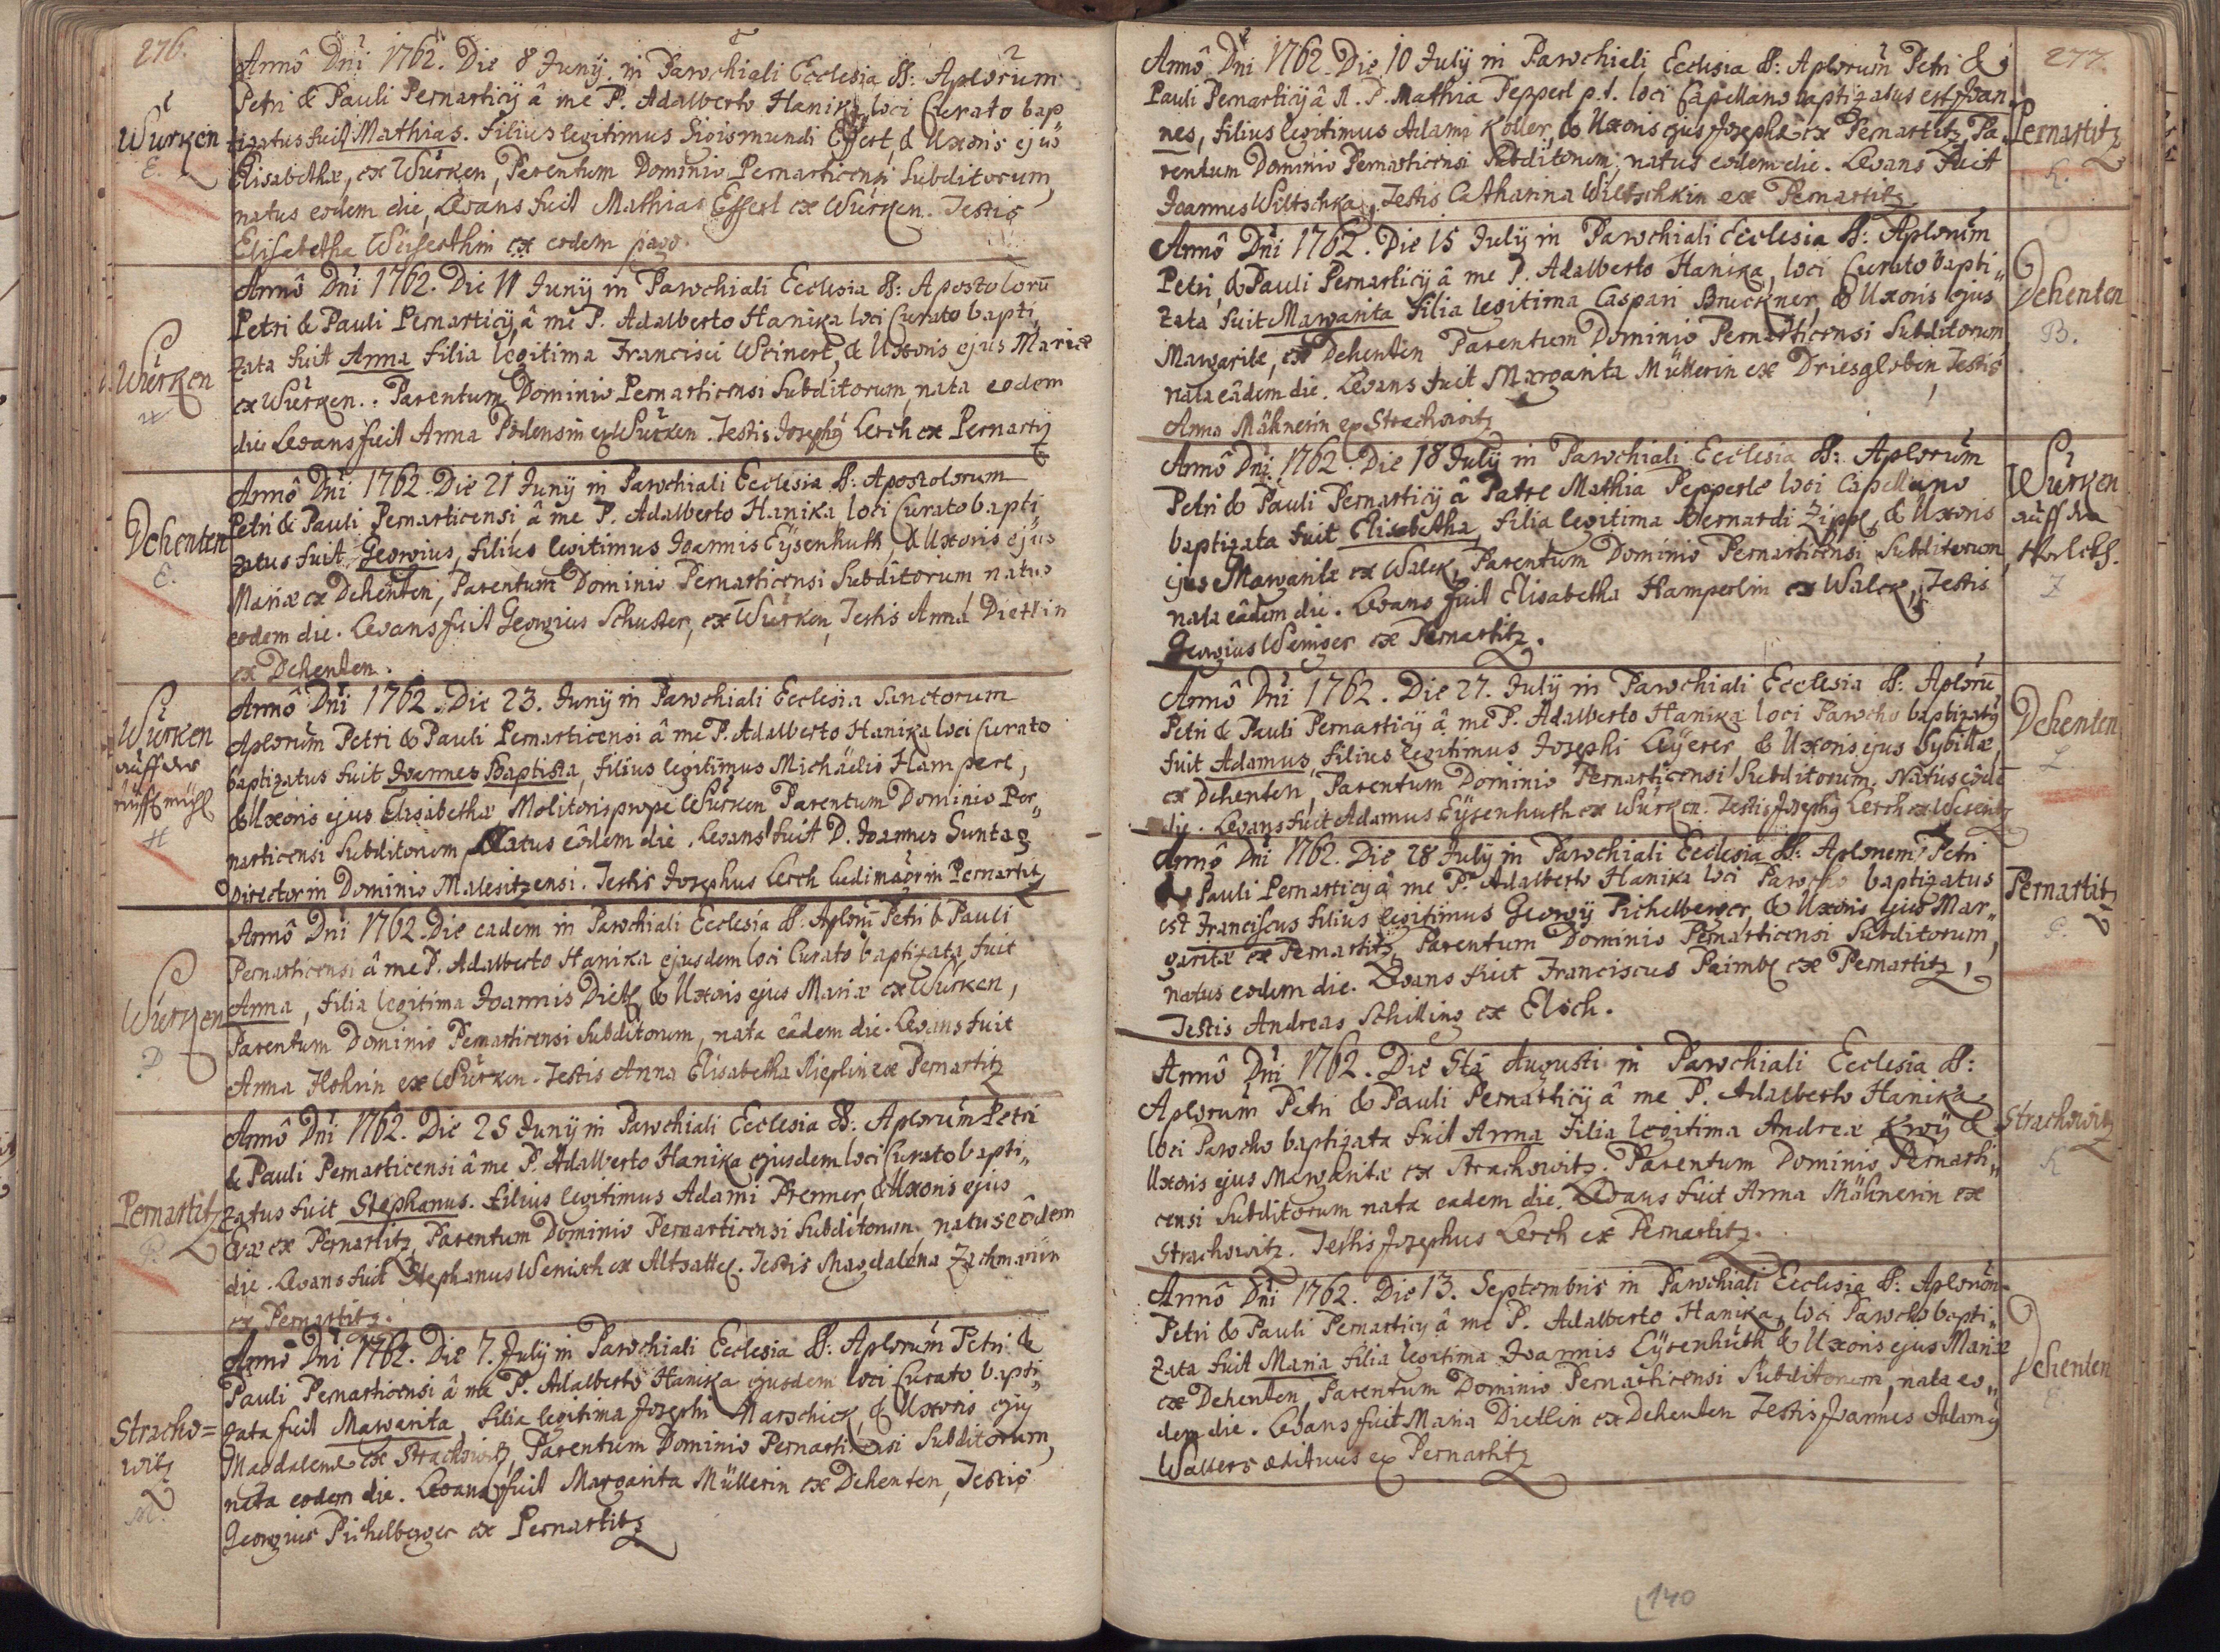 276.
Würken
E.
Annô Dni 1762. Die 8 Junÿ in Parochiali Ecclesia SS: Aplorum
Petri & Pauli Pernarticÿ â me P. Adalberto Hanika loci Curato bap
tizatus fuit Mathias. filius legitimus Sigismundi Effert, & Uxoris ejus
Elisabethæ, ex Würken, Parentum Dominio Pernarticensi Subditorum,
natus eodem die, Levans fuit Mathias Effert ex Würken. Testis
Elisabetha Weiserthin ex eodem pago.
Würken
W
Annô Dni 1762. Die 11 Junÿ in Parochiali Ecclesia SS: Apostolorū
Petri & Pauli Pernarticÿ, â me P. Adalberto Hanika loci Curato bapti„
zata fuit Anna filia legitima Francisci Weinert, & Uxoris ejus Mariæ
ex Würken. Parentum Dominio Pernarticensi Subditorum, nata eodem
die Levans fuit Anna ex Würken. Testis Josephq Lerch ex Pernartz
Dehenten
E.
Annô Dni 1762. Die 21 Junÿ in Parochiali Ecclesia SS: Apostolorum
Petri & Pauli Pernarticensi â me P. Adalberto Hanika loci Curato bapti„
zatus fuit Georgius, filius legitimus Joannis Eÿsenhuth, & Uxoris ejus
Mariæ ex Dehenten, Parentum Dominio Pernarticensi Subditorum natus
eodem die. Levans fuit Georgius Schuster, ex Würken, Testis Anna Dietlin
ex Dehenten.
Würken
auff der
H
Annô Dni 1762. Die 23. Junÿ in Parochiali Ecclesia Sanctorum
Aplorum Petri & Pauli Pernarticensi â me P. Adalberto Hanika loci Curato
baptizatus fuit Joannes Baptista, filius legitimus Michäelis Hamperl,
& Uxoris ejus Elisabethæ, Molitoris prope Würken Parentum Dominio Per„
narticensi Subditorum, Natus eôdem die. Levans fuit D. Joannes Suntag
Director in Dominio Malesitzensi. Testis Josephus Lerch ludimaör in Pernartitz
Würken
D
Annô Dni 1762. Die eadem in Parochiali Ecclesia SS: Aplorū Petri & Pauli
Pernarticensi â me P. Adalberto Hanika ejusdem loci Curato baptizata fuit
Anna, filia legitima Joannis Dietl, & Uxoris ejus Mariæ ex Würken,
Parentum Dominio Pernarticensi Subditorum, nata eâdem die. Levans fuit
Anna Hohrin ex Würken. Testis Anna Elisabetha Rieplin ex Pernartitz
Pernartitz
P.
Annô Dni 1762. Die 25 Junÿ in Parochiali Ecclesia SS: Aplorum Petri
& Pauli Pernarticensi â me P. Adalberto Hanika ejusdem loci Curato bapti„
zatus fuit Stephanus. filius legitimus Adami Prenner, & Uxoris ejus
Evæ ex Pernartitz, Parentum Dominio Pernarticensi Subditorum, natus eôdem
die. Levans fuit Stephanus Wenisch ex Altsattel. Testis Magdalena Zachmanin
ex Pernartitz.
Stracho=
witz
M.
Annô Dni 1762. Die 7. Julÿ in Parochiali Ecclesia SS: Aplorum Petri &
Pauli Pernarticensi â me P. Adalberto Hanika ejusdem loci Curato bapti„
zata fuit Margarita, filia legitima Josephi Marschick, & Uxoris ejq
Magdalenæ ex Strachowitz, Parentum Dominio Pernarticensi Subditorum,
nata eodem die. Levans fuit Margarita Müllerin ex Dehenten, Testis
Georgius Pichelberger ex Pernartitz
277.
Annô Dni 1762. Die 10 Julÿ in Parochiali Ecclesia SS: Aplorum Petri &
Pauli Pernarticÿ â R. P. Mathia Pepperl p.t. loci Capellano baptizatus est Joan„
nes, filius legitimus Adami Koller, & Uxoris ejus Josephæ ex Pernartitz, Pa„
rentum Dominio Pernarticensi Subditorum, natus eodem die. Levans fuit
Joannes Wiltschka, Testis Catharina Wiltschkin ex Pernartitz.
Pernartitz
K.
Annô Dni 1762. Die 15 Julÿ in Parochiali Ecclesia SS: Aplorum
Petri, & Pauli Pernarticÿ â me P. Adalberto Hanika, loci Curato bapti„
zata fuit Margarita filia legitima Caspari Bruckner, & Uxoris ejus
Margaritæ, ex Dehenten Parentum Dominio Pernarticensi Subditorum
nata eâdem die. Levans fuit Margarita Müllerin ex Driesgloben, Testis
Anna Mähnerin ex Strachowitz
Dehenten
B.
Annô Dni 1762. Die 18 Julÿ in Parochiali Ecclesia SS: Aplorum
Petri & Pauli Pernarticÿ â Patre Mathia Pepperle loci Capellano
baptizata fuit Elisabetha, filia legitima Bernardi Zippl, & Uxoris
ejus Margaritæ ex Walck, Parentum Dominio Pernarticensi Subditorum,
nata eâdem die. Levans fuit Elisabetha Hamperlin ex Walck, Testis
Georgius Weniger ex Pernartitz.
Würken
auff der
Z
Annô Dni 1762. Die 27. Julÿ in Parochiali Ecclesia SS: Aplorū
Petri & Pauli Pernarticÿ â me P. Adalberto Hanika loci Parocho baptizatq
fuit Adamus, filius legitimus Josephi Leÿerer, & Uxoris ejus Sybillæ,
ex Dehenten, Parentum Dominio Pernarticensi Subditorum, Natus eôde
die. Levans fuit Adamus Eÿsenhuth ex Würken. Testis Josephq Lerch ex
Dehenten
L
Annô Dni 1762. Die 28 Julÿ in Parochiali Ecclesia SS: Aplorum Petri
& Pauli Pernarticÿ â me P. Adalberto Hanika loci Parocho baptizatus
est Franciscus filius legitimus Georgÿ Pichelberger, & Uxoris ejus Mar„
garitæ ex Pernartitz, Parentum Dominio Pernarticensi Subditorum,
natus eodem die. Levans fuit Franciscus Paimbl ex Pernartitz,
Testis Andreas Schilling ex Elsch.
Pernartitz
P.
Annô Dni 1762. Die 5tâ Augusti in Parochiali Ecclesia SS:
Aplorum Petri & Pauli Pernarticÿ â me P. Adalberto Hanika
loci Parocho baptizata fuit Anna filia legitima Andreæ Kroÿ &
Uxoris ejus Margaritæ ex Strachowitz. Parentum Dominio Pernarti„
censi Subditorum nata eadem die. Levans fuit Anna Mähnerin ex
Strachowitz. Testis Josephus Lerch ex Pernartitz.
Strachowitz
K
Annô Dni 1762. Die 13. Septembris in Parochiali Ecclesia SS: Aplorum
Petri & Pauli Pernarticÿ â me P. Adalberto Hanika, loci Parocho bapti„
zata fuit Maria filia legitima Joannis Eÿsenhuth & Uxoris ejus Mariæ
ex Dehenten, Parentum Dominio Pernarticensi Subditorum, nata eo„
dem die. Levans fuit Maria Dietlin ex Dehenten Testis Joannes Adamq
Walters ædituus ex Pernartitz
Dehenten
E
140